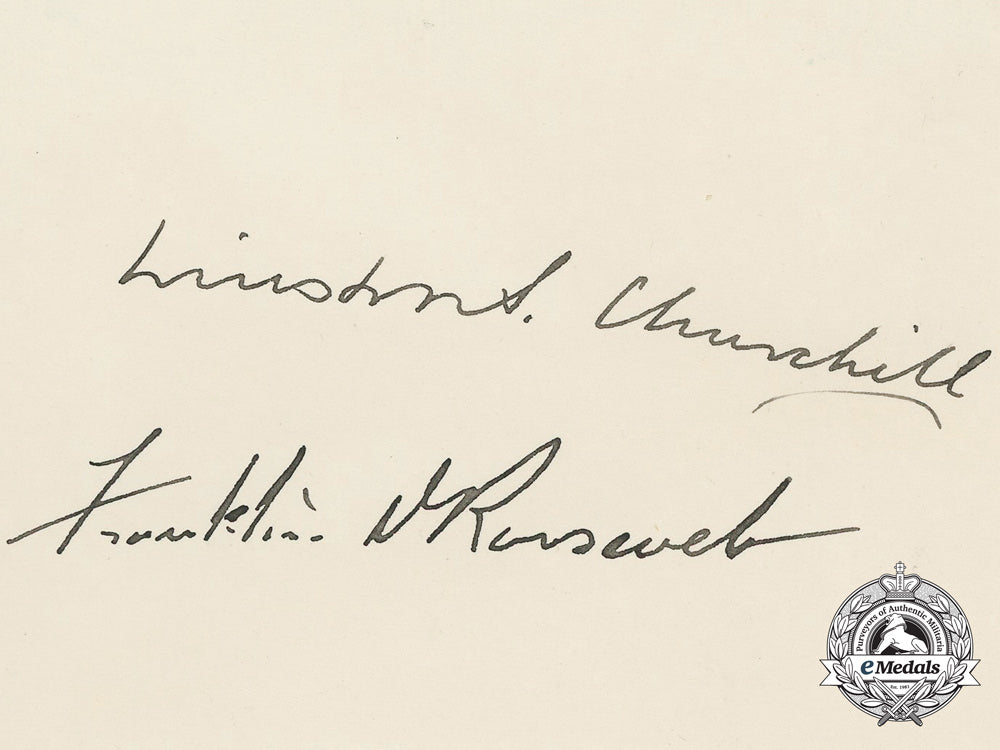 Winston S. Churchill
Franklin D Roosevelt
Purveyors of Authentic Militaria
eMedals
Est. 1983